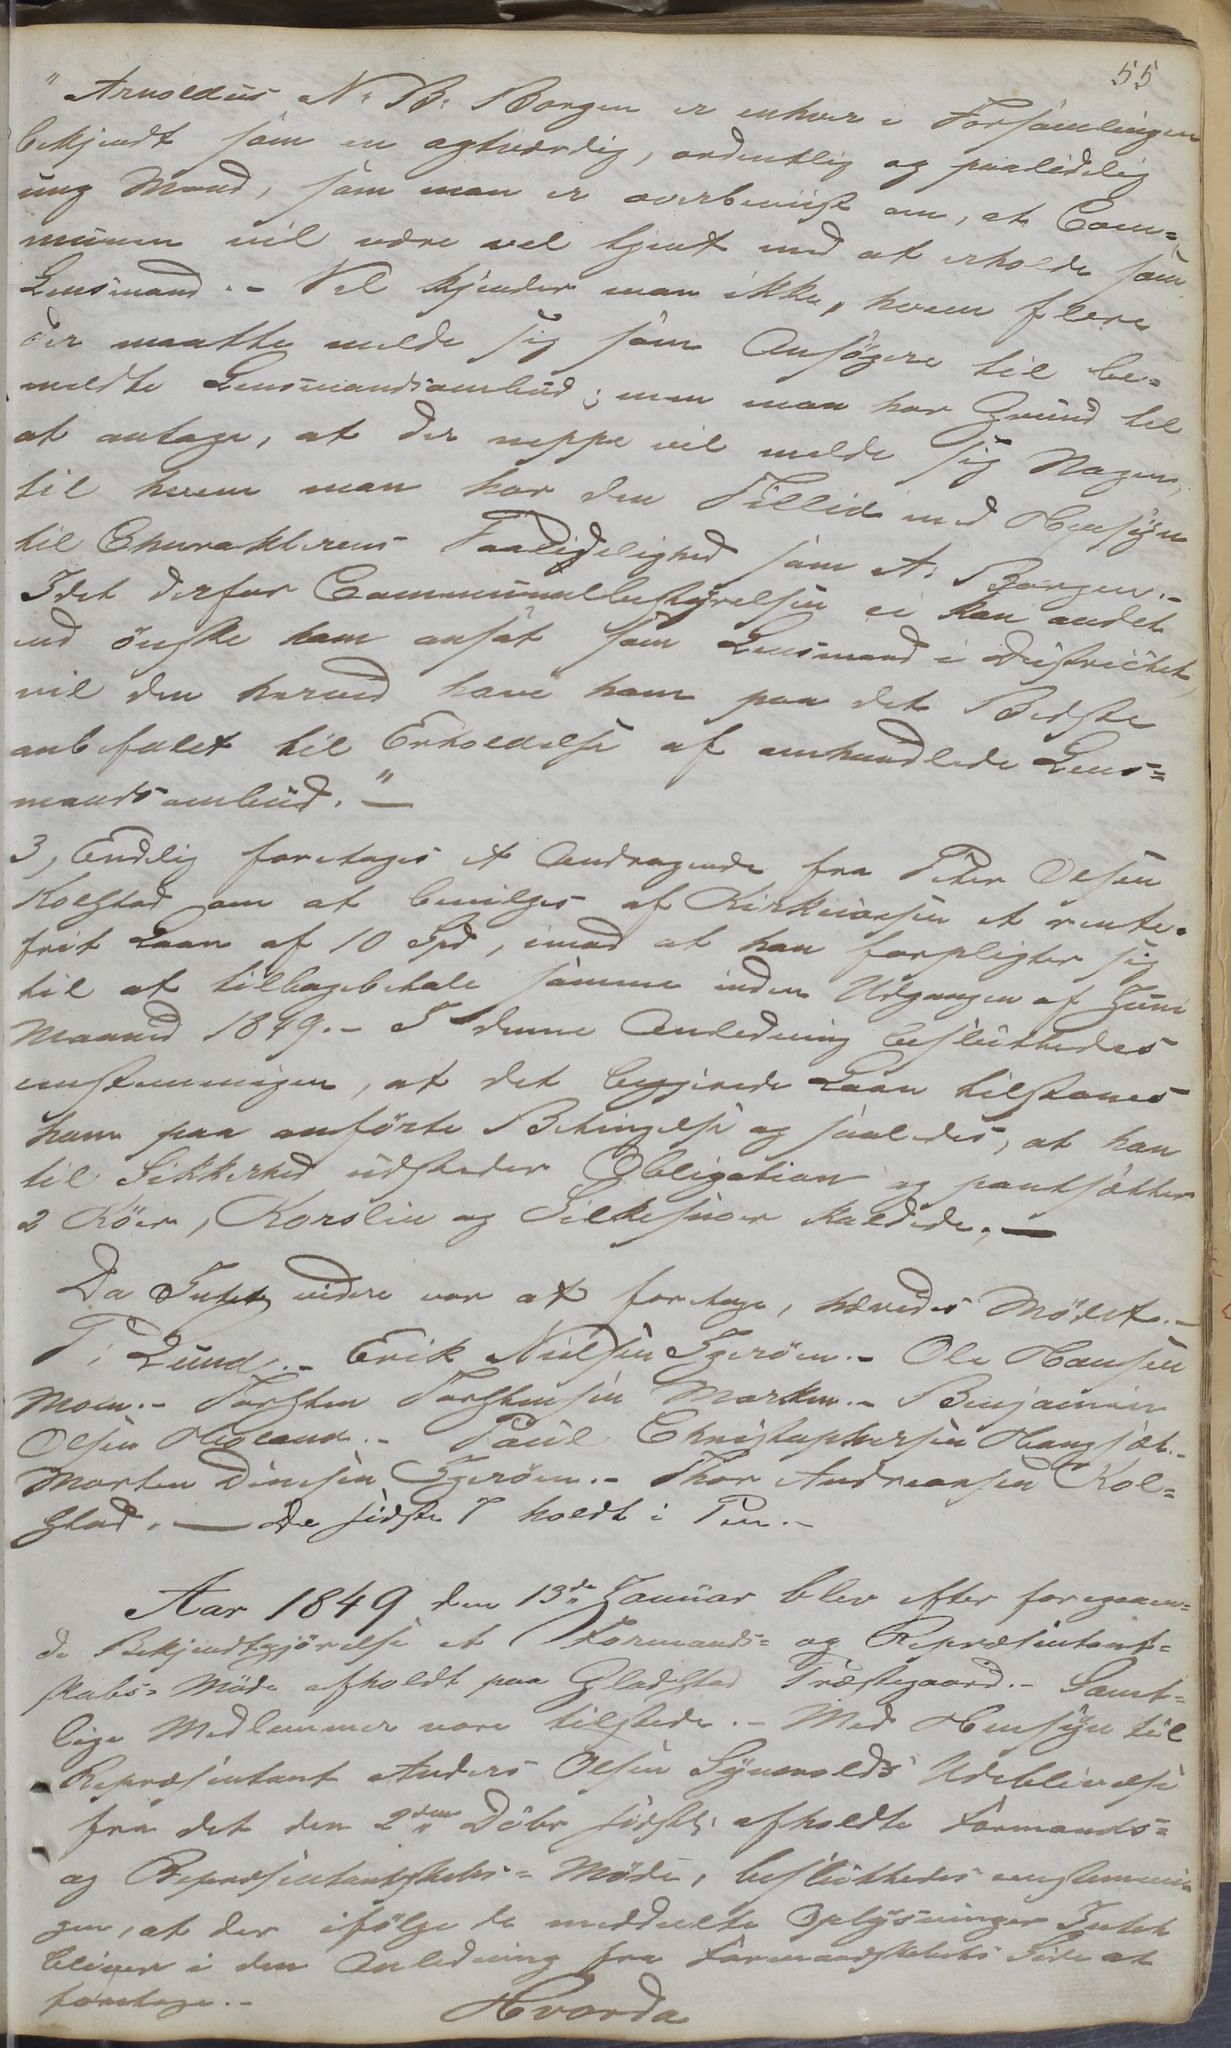 55
" Arnoldus N. B. Borgen er enhver i Forsamlingen
bekjendt som en agtværdig, ordentlig og paalidelig
ung Mand, som man er overbeviist om, at Com=
munen vil være vel tjent med at erholde som
Lensmand. - Vel kjender man ikke, hvem flere
der maatte melde sig som Ansøgere til be=
meldte Lensmandsombud; men man har Grund til
at antage, at der neppe vil melde sig Nogen,
til hvem man har den Tillid med Hensyn
til Charakterens Paalidelighed som A. Borgen. -
Idet derfor Communalbestyrelsen ei kan andet
end ønske ham ansat som Lensmand i Districtet,
vil den herved have ham paa det Bedste
anbefalet til Erholdelse af omhandlede Lens=
mandsombud. " —
3, Endelig foretages et Andragende fra Peter Olsen
Kolstad om at bevilges af Kirkecassen et rente=
frit Laan af 10 Spd, imod at han forpligter sig
til at tilbagebetale samme inden Udgangen af Juni
Maaned 1849. - I denne Anledning besluttedes
enstemmigen, at det begjærede Laan tilstaaes
ham paa anførte Betingelse og saaledes, at han
til Sikkerhed udsteder Obligation og pantsætter
2 Køer, Korslin og Silkesuør kaldede. —
Da Intet videre var at foretage, hævedes Mødet. -
P. Lund. - Erik Nielsen Tgerøen. - Ole Hansen
Moen. - Torsten Torstensen Marken. - Benjamin
Olsen Høeland. - Paul Christophersen Haugsæt. -
Morten Dinesen Tgerøen. - Thor Andreassen Kol=
stad. — De sidste 7 holdt i Pen. -
Aar 1849 den 13de Januar blev efter foregaaen=
de Bekjendtgjørelse et Formands= og Repræsentant=
skabs= Møde afholdt paa Gladstad Præstegaard. - Samt=
lige Medlemmer vare tilstede. - Med Hensyn til
Repræsentant Anders Olsen Synesvolds Udeblivelse
fra det den 2den Dcbr sidstl. afholdte Formands=
og Repræsentantskabs= Møde, besluttedes enstemmi
gen, at der ifølge de meddeelte Oplysninger Intet
bliver i den Anledning fra Formandskabets Side at
foretage. -
Hvorda